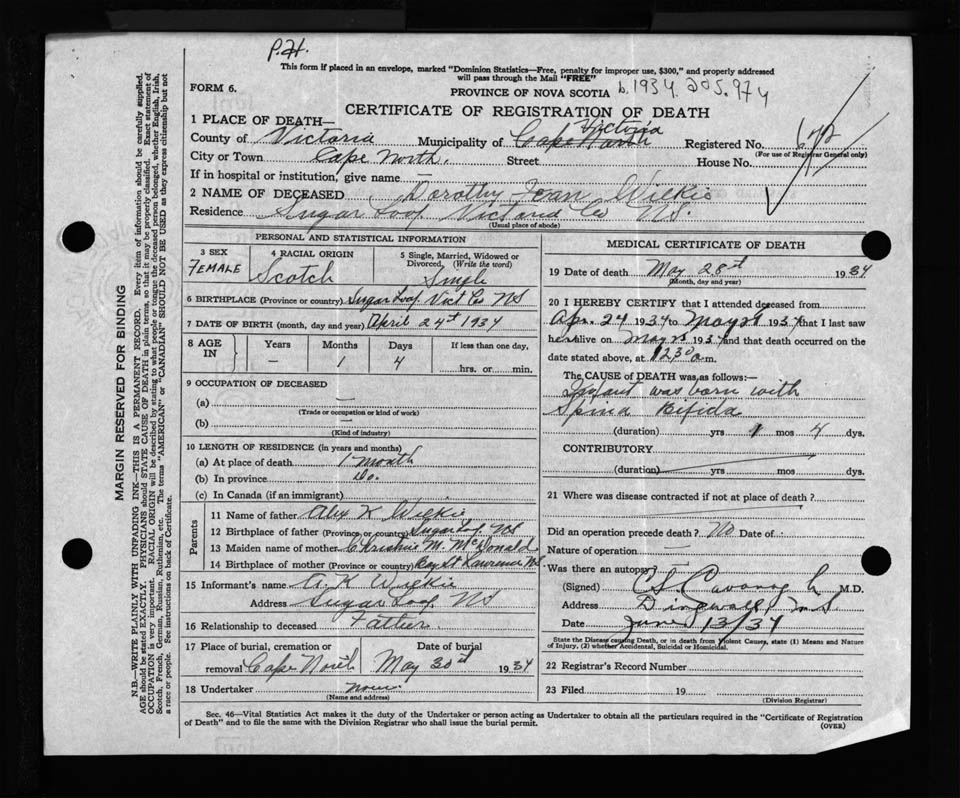 P.H.
This form if placed in an envelope, marked "Dominion Statistics—Free, penalty for improper use, $300," and properly addressed
will pass through the Mail "FREE"
FORM 6.
PROVINCE OF NOVA SCOTIA b.1934.205.974
CERTIFICATE OF REGISTRATION OF DEATH
1 PLACE OF DEATH—
County of Victoria Municipality of Victoria Registered No. 672
(For use of Registrar General only)
City or Town Cape North. Street House No.
If in hospital or institution, give name —
2 NAME OF DECEASED Dorothy Joan Wilkie
Residence Sugar Loaf Victoria Co NS.
(Usual place of abode)
PERSONAL AND STATISTICAL INFORMATION
3 SEX 4 RACIAL ORIGIN 5 Single, Married, Widowed or Divorced, (Write the word)
FEMALE Scotch Single
6 BIRTHPLACE (Province or country) Sugar Loaf Vict Co NS
7 DATE OF BIRTH (month, day and year) April 24th 1934
8 AGE IN Years Months Days If less than one day,
— 1 4 hrs. or min.
9 OCCUPATION OF DECEASED
(a) —
(Trade or occupation or kind of work)
(b) —
(Kind of industry)
10 LENGTH OF RESIDENCE (in years and months)
(a) At place of death 1 month
(b) In province Do.
(c) In Canada (if an immigrant)
Parents
11 Name of father Alex K Wilkie
12 Birthplace of father (Province or country) Sugar Loaf NS
13 Maiden name of mother Christie M. McDonald
14 Birthplace of mother (Province or country) Bay St Lawrence NS
15 Informant's name A. K Wilkie
Address Sugar Loaf NS
16 Relationship to deceased Father
17 Place of burial, cremation or Date of burial
removal Cape North May 30th 1934
18 Undertaker none
(Name and address)
MEDICAL CERTIFICATE OF DEATH
19 Date of death May 28st 1934
(Month, day and year)
20 I HEREBY CERTIFY that I attended deceased from
Apr. 24 1934 to May 28 1934 that I last saw
her alive on May 1934 and that death occurred on the
date stated above, at 1230 a m.
The CAUSE OF DEATH was as follows:—
Infant was born with
Spina Bifida
(duration) yrs 1 mos 4 dys.
CONTRIBUTORY
(duration) yrs mos dys.
21 Where was disease contracted if not at place of death?
Did an operation precede death? No Date of
Nature of operation —
Was there an autopsy?
(Signed) M.D.
Address Dingwall N.S.
Date June 13/34
State the Disease causing Death, or in death from Violent Causes, state (1) Means and Nature
of Injury, (2) whether Accidental, Suicidal or Homicidal.
22 Registrar's Record Number
23 Filed 19
(Division Registrar)
Sec. 46—Vital Statistics Act makes it the duty of the Undertaker or person acting as Undertaker to obtain all the particulars required in the "Certificate of Registration
of Death" and to file the same with the Division Registrar who shall issue the burial permit.
(OVER)
MARGIN RESERVED FOR BINDING
N.B.—WRITE PLAINLY WITH UNFADING INK—THIS IS A PERMANENT RECORD. Every item of information should be carefully supplied.
AGE should be stated EXACTLY. PHYSICIANS should STATE CAUSE OF DEATH in plain terms, so that it may be properly classified. Exact statement of
OCCUPATION is very important. RACIAL ORIGIN will be described by stating to what people or tongue the deceased person belonged, whether English, Irish,
Scotch, French, German, Russian, Ruthenian, etc. The terms "AMERICAN" or "CANADIAN" SHOULD NOT BE USED as they express citizenship but not
a race or people. See instructions on back of Certificate.